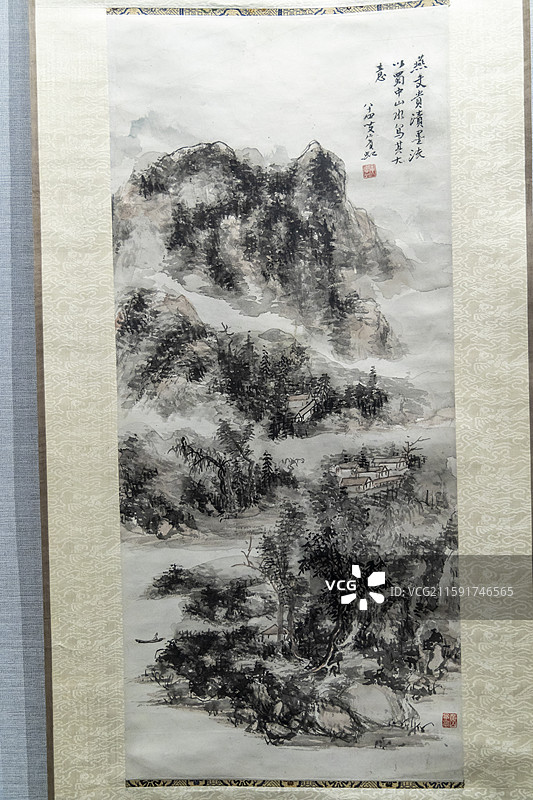 燕文貴漬墨法
以蜀中山水寫其大
意
八十四叟賓虹
VCG
ID: VCG211591746565